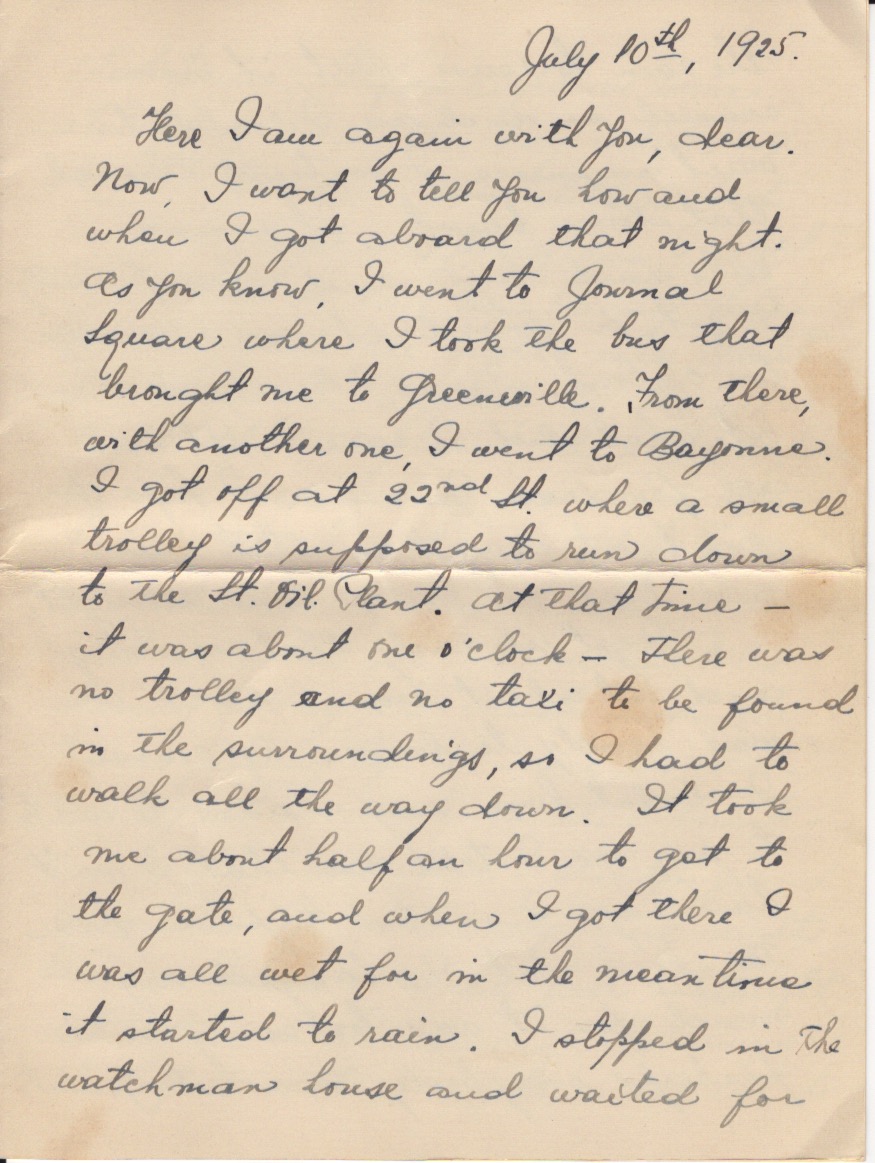 July 10th, 1925.
Here I am again with you, dear.
Now, I want to tell you how and
when I got aboard that night.
As you know, I went to Journal
Square where I took the bus that
brought me to Greenville. From there,
with another one, I went to Bayonne.
I got off at 22nd St. where a small
trolley is supposed to run down
to the St. Oil Plant. At that time –
it was about one o'clock – there was
no trolley and no taxi to be found
in the surroundings, so I had to
walk all the way down. It took
me about half an hour to get to
the gate, and when I got there I
was all wet for in the meantime
it started to rain. I stopped in the
watchman house and waited for